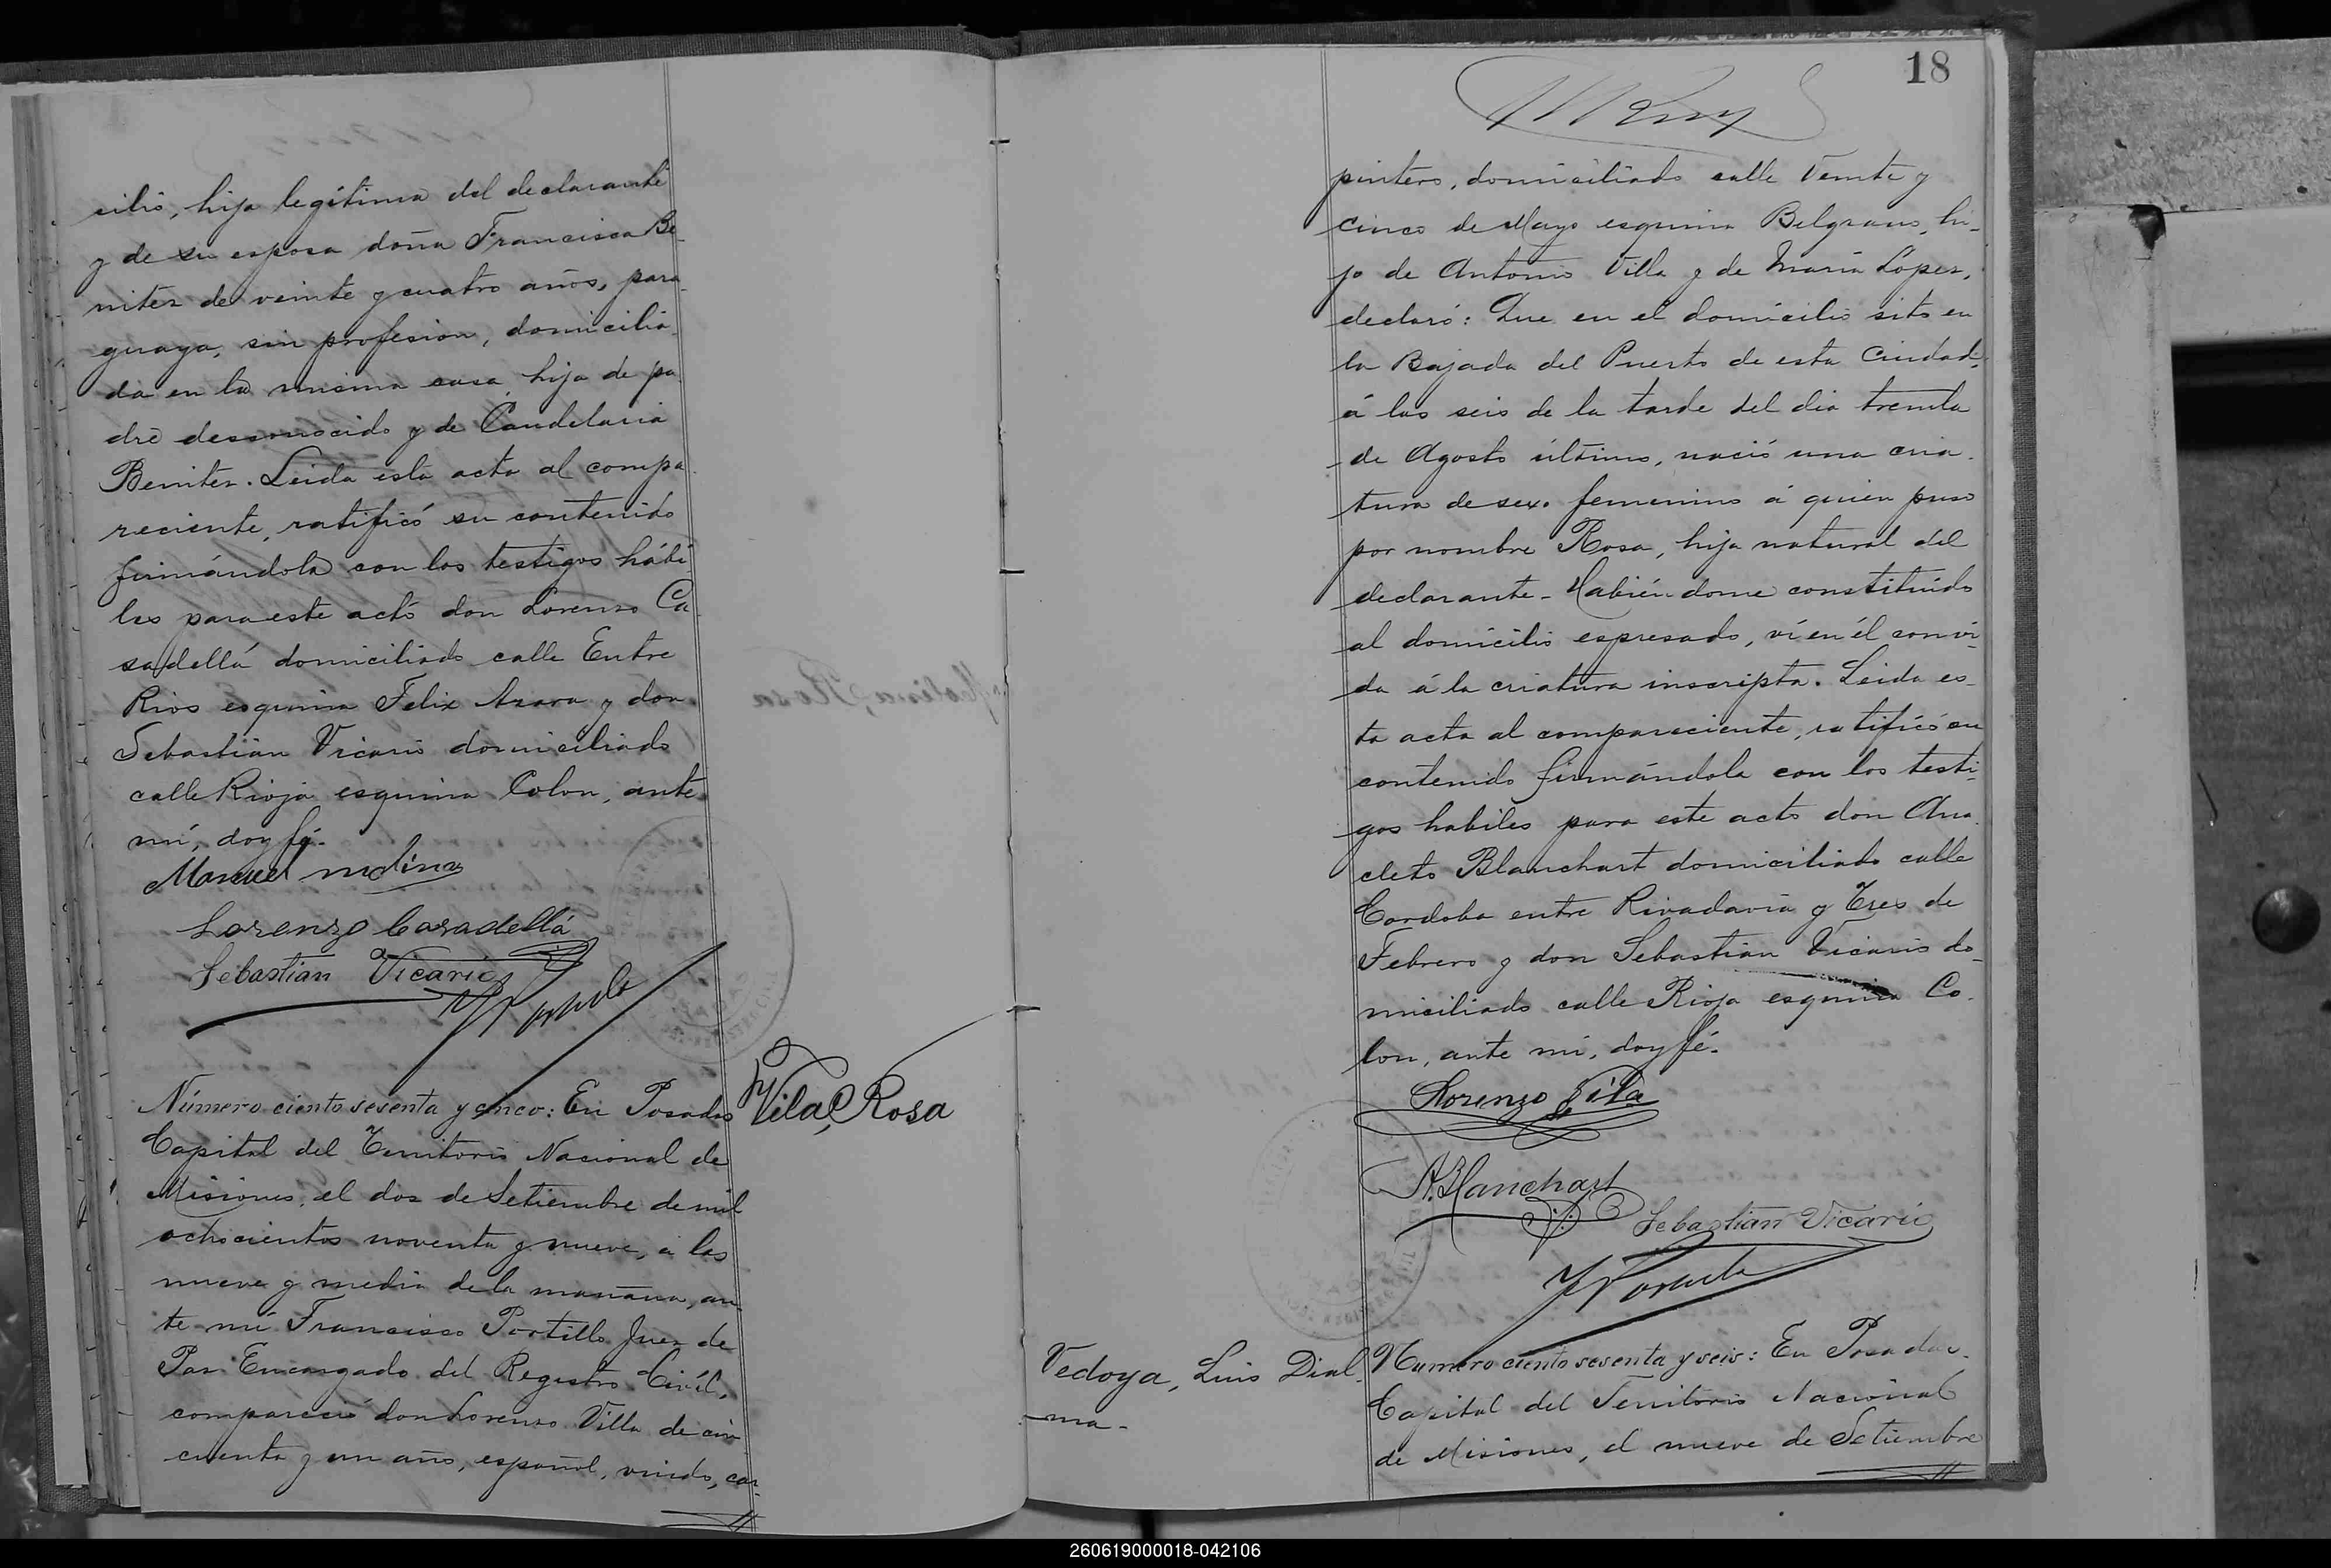 cilio, hija legítima del declarante
y de su esposa doña Francisca Be-
nitez de veinte y cuatro años, para-
guaya, sin profesion, domicilia-
da en la misma casa, hija de pa-
dre desconocido y de Candelaria
Benitez. Leida esta acta al compa-
reciente, ratificó su contenido
firmándola con los testigos hábi-
les para este acto don Lorenzo Ca-
sadellá domiciliado calle Entre
Rios esquina Felix Azara y don
Sebastián Vicario domiciliado
calle Rioja esquina Colon, ante
mí, doy fé.
Manuel molina
Lorenzo Casadellá
Sebastian Vicario
Número ciento sesenta y cinco: En Posadas
Capital del Territorio Nacional de
Misiones, el dos de Setiembre de mil
ochocientos noventa y nueve, á las
nueve y media de la mañana, an-
te mí Francisco Portillo Juez de
Paz Encargado del Registro Civíl,
compareció don Lorenzo Villa de cin-
cuenta y un año, español, viudo, car-
Vila, Rosa
18
pintero, domiciliado calle Veinte y
cinco de Mayo esquina Belgrano, hi-
jo de Antonio Villa y de María López,
declaró: Que en el domicilio sito en
la Bajada del Puerto de esta Ciudad,
á las seis de la tarde del dia treinta
de Agosto último, nació una cria-
tura de sexo femenino á quien puso
por nombre Rosa, hija natural del
declarante. Habiéndome constituido
al domicilio espresado, ví en él con vi-
da á la criatura inscripta. Leida es-
ta acta al compareciente, ratificó su
contenido firmándola con los testi-
gos habiles para este acto don Ana-
cleto Blanchart domiciliado calle
Cordoba entre Rivadavia y Tres de
Febrero y don Sebastián Vicario do-
miciliado calle Rioja esquina Co-
lon, ante mí, doy fé.
Lorenzo Vila
A. Blanchart
Sebastian Vicario
Vedoya, Luis Dial-
ma-
Numero ciento sesenta y seis: En Posadas.
Capital del Territorio Nacional
de Misiones, el nueve de Setiembre
260619000018-042106